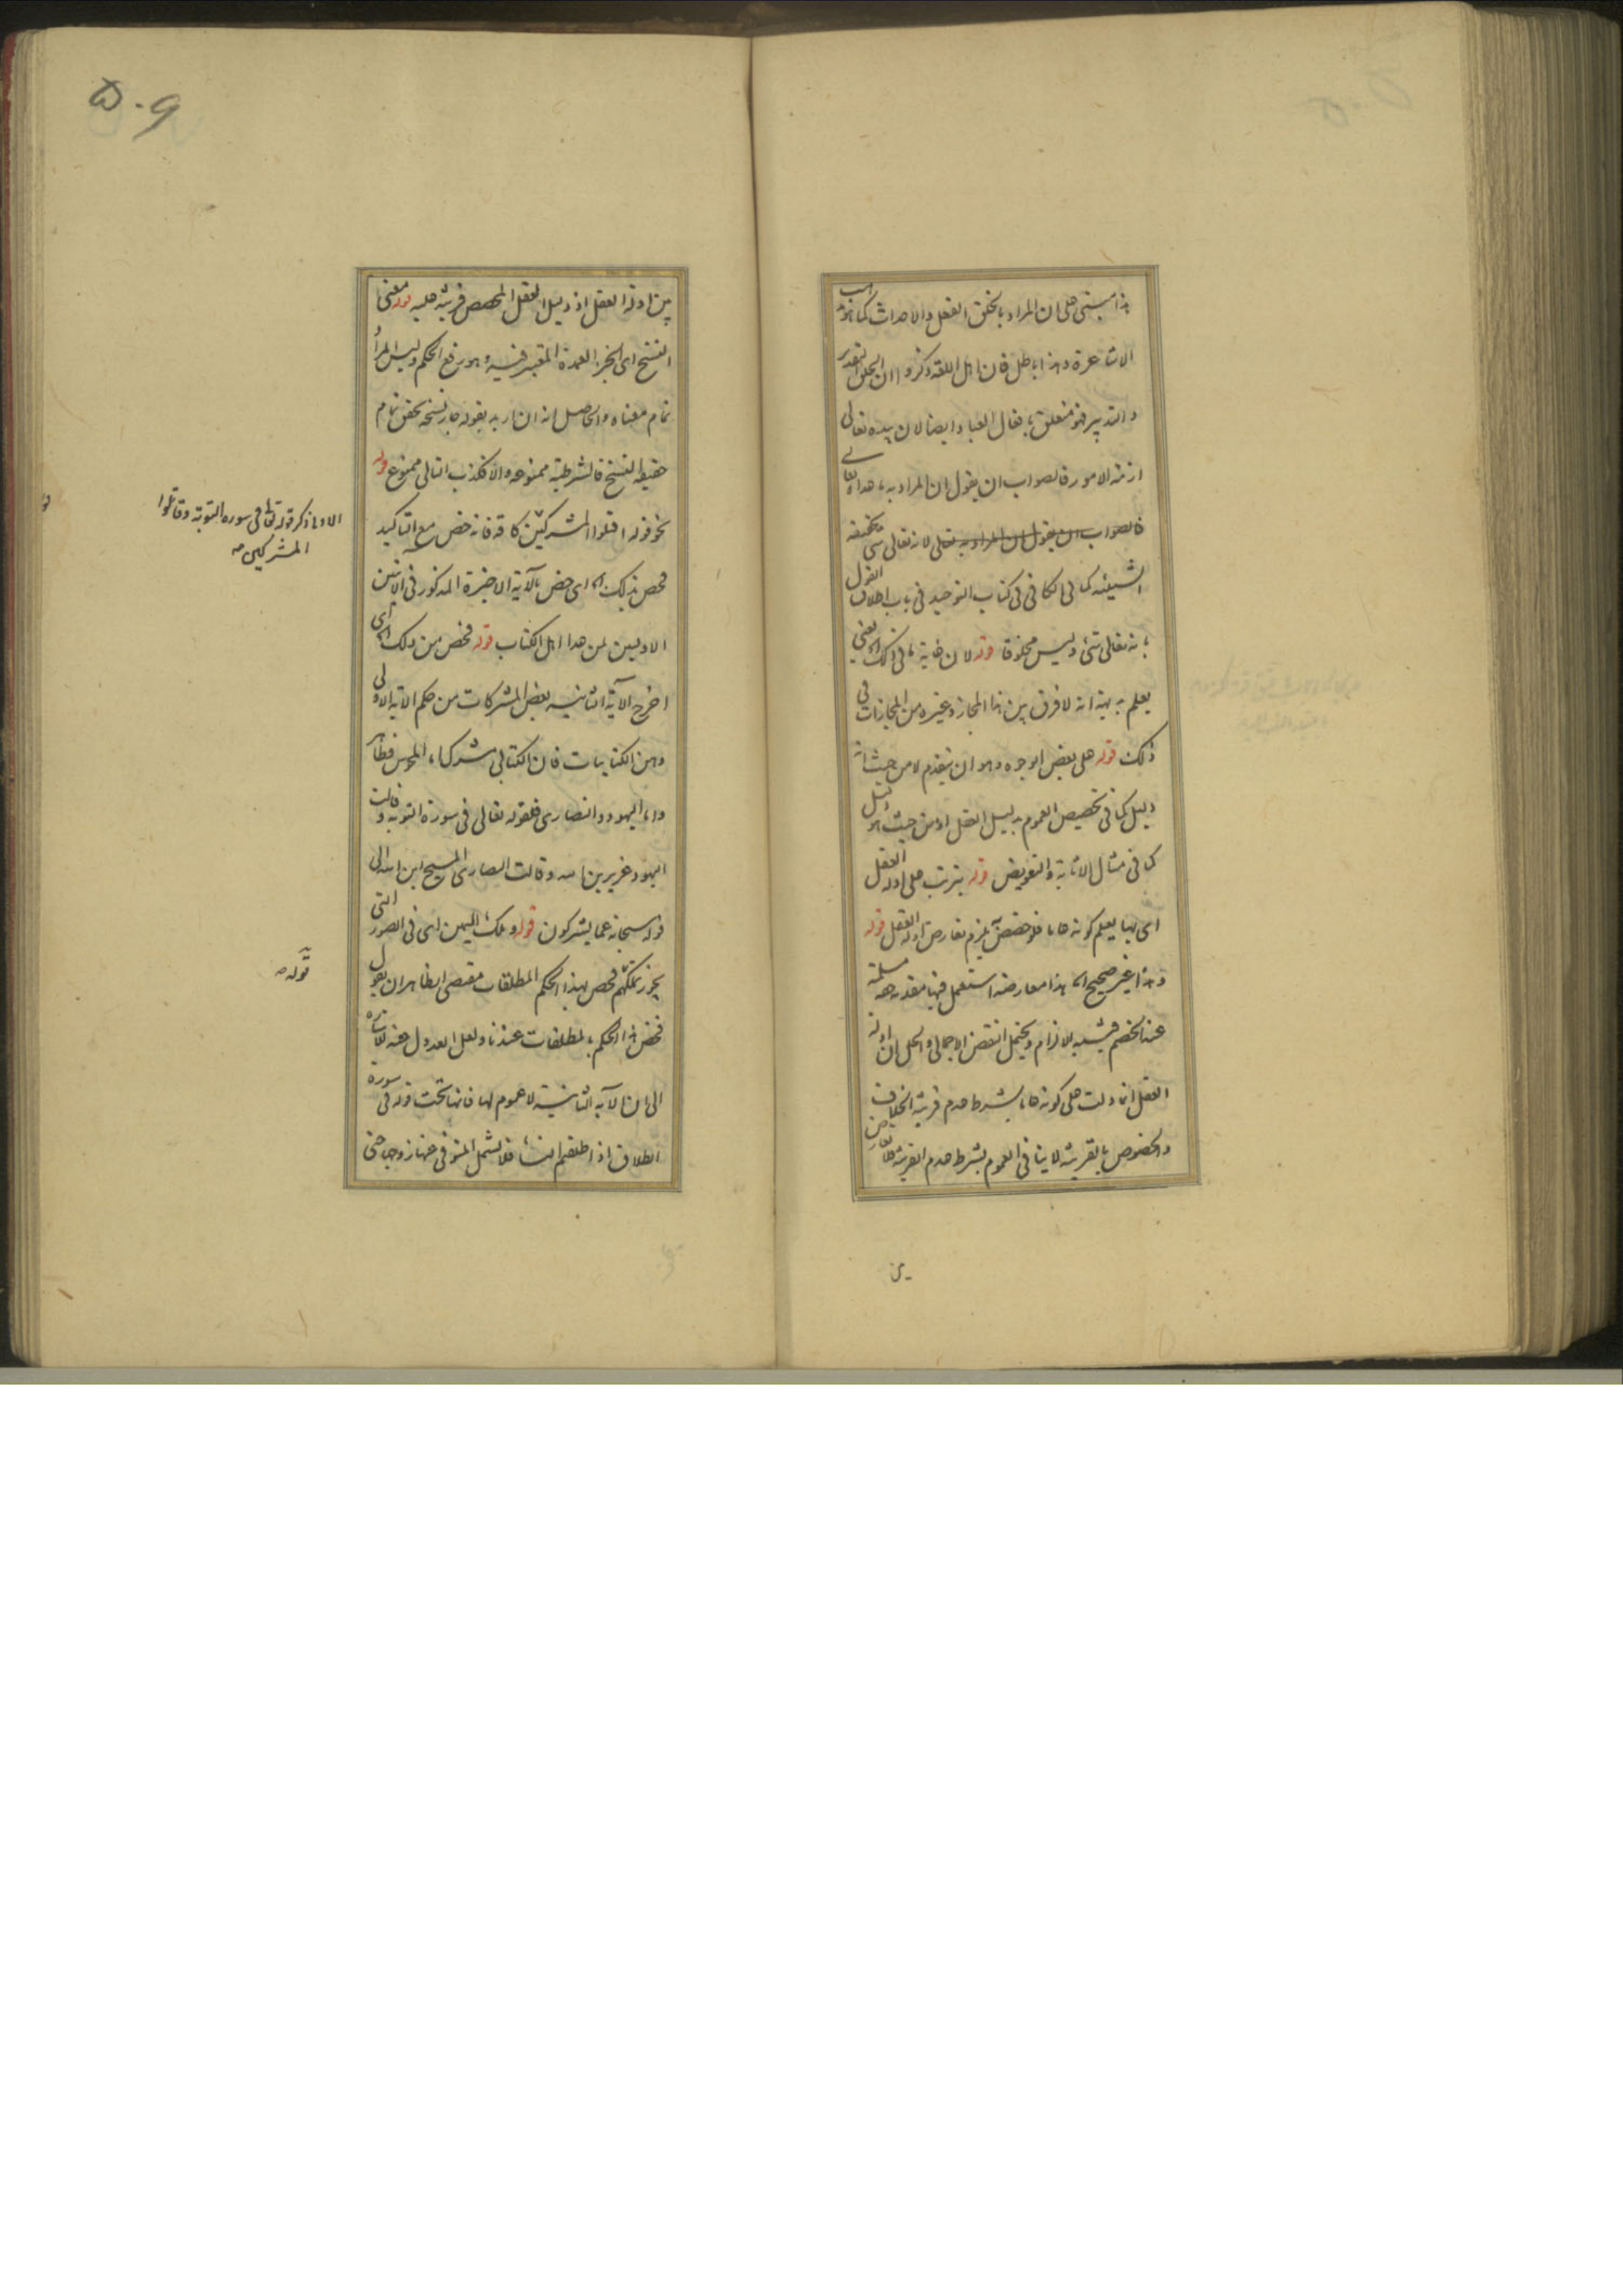 هذا مبنی علی ان المراد بالخلق الفعل والاحداث کما هو مذهب
الاشاعرة وهذا باطل فان اهل اللغة ذکروا ان الخلق التقدیر
والتدبیر فهو متعلق بافعال العباد وایضا لان بیده تعالی
ازمة الامور فالصواب ان یقول ان المراد به ما عداه تعالی
فالصواب ان یقول ان المراد به تعالی لانه تعالی شیء بحقیقة
الشیئیه کما فی الکافی فی کتاب التوحید فی باب اطلاق القول
بانه تعالی شیء ولیس مخلوقا قوله لان غایة ما فی ذلک اه یعنی
یعلم بدیهة انه لا فرق بین هذا المجاز وغیره من المجازات فی
ذلک قوله علی بعض الوجوه وهو ان یتقدم لا من حیث انه
دلیل کما فی تخصیص العموم بدلیل العقل او من حیث هو دلیل
کما فی مثال الاثابة والتعویض قوله یترتب علی ادلة العقل
ای بها یعلم کونه عاما فلو خصصت یلزم تعارض ادلة العقل قوله
وهذا غیر صحیح اه هذا معارضه استعمل فیها مقدمه مسلمة
عند الخصم فیشبه الالزام ویحتمل النقض الاجمالی والحل ان ادلة
العقل انما دلت علی کونه عاما بشرط عدم قرینة الخلاف
والخصوص بالقرینة لا ینافی العموم بشرط عدم القرینة فلا تعارض
بین
۵۰۹
بین ادلة العقل اذ دلیل العقل المخصص قرینة علیه قوله معنی
النسخ ای الجزء العمدة المعتبر فیه وهو رفع الحکم ولیس المراد
تمام معناه والحاصل انه ان ارید بقوله جاز نسخه تحقق تمام
حقیقة النسخ فالشرطیة ممنوعه والا فکذب التالی ممنوع قوله
نحو قوله اقتلوا المشرکین کافة فانه خص مع التاکید
فخص بذلک اه ای خص بالآیة الاخیرة المذکور فی الآیتین
الاولیین لمن عدا اهل الکتاب قوله فخص من ذلک اه ای
اخرج الآیة الثانیة بعض المشرکات من حکم الآیة الاولی
وهن الکتابیات فان الکتابی مشرک اما المجوس فظاهر
واما الیهود والنصاری فلقوله تعالی فی سورة التوبه وقالت
الیهود عزیر بن الله وقالت النصاری المسیح ابن الله الی
قوله سبحانه عما یشرکون قوله وملک الیمین ای فی الصور التی
یجوز تملکهم فخص بهذا الحکم المطلقات مقتضی الظاهر ان یقول
فخص هذا الحکم بالمطلقات عندنا ولعل العدول عنه للاشارة
الی ان الآیه الثانیة لا عموم لها فانها تحت قوله فی سورة
الطلاق اذا طلقتم النساء فلا تشمل المتوفی عنها زوجها حتی
الاولی ذکر قوله تعالی فی سوره التوبة وقاتلوا
المشرکین صه
قوله صه